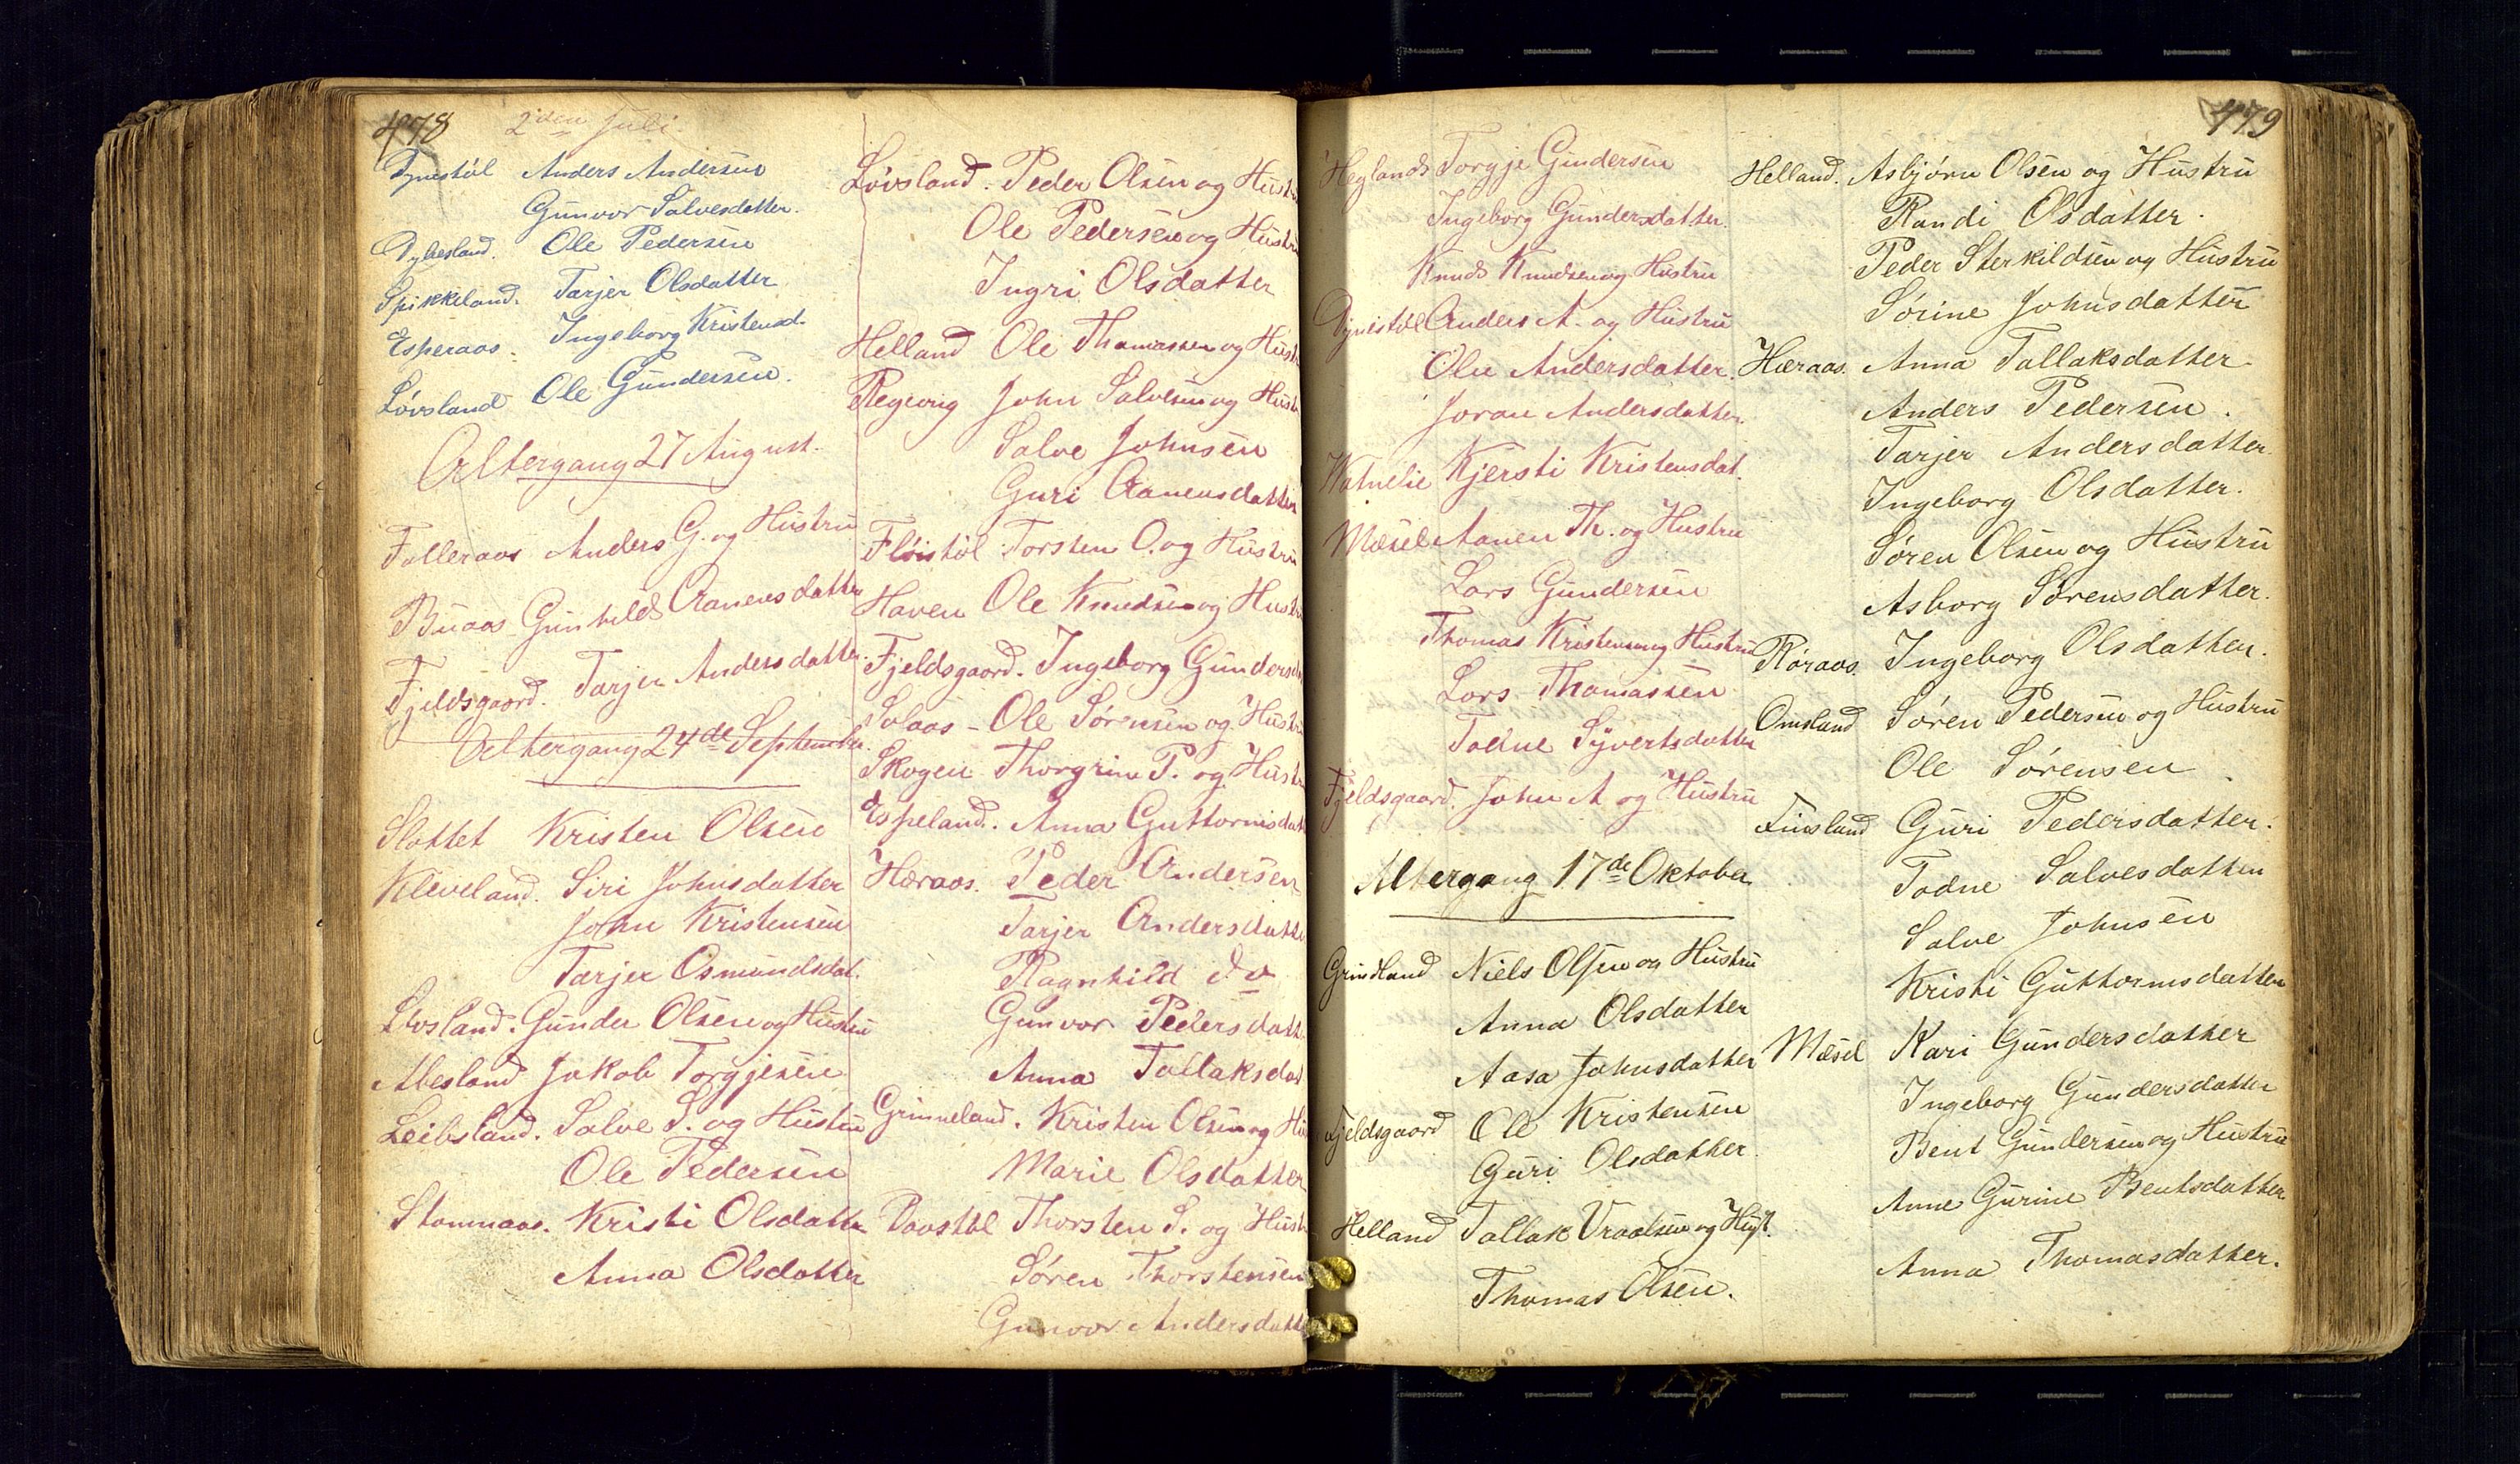 478 2den Juli.
Dynestöl Anders Andersen
Gunvor Salvesdatter.
Dybesland. Ole Pedersen
Spikkeland. Tarjer Olsdatter
Esperaas. Ingeborg Kristensd.
Lövsland Ole Gundersen.
Altergang 27 August.
Falleraas Anders G. og Hustru
Buaas Gunhild Aanensdatter
Fjeldsgaard. Tarjer Andersdatter.
Altergang 24de September.
Slottet Kristen Olsen
Kleveland. Siri Johnsdatter
John Kristensen
Tarjer Osmundsdat.
Lövsland. Gunder Olsen og Hustru
Abesland Jakob Torgjesen
Leibsland. Salve S. og Hustru
Ole Pedersen
Stommaas. Kristi Olsdatter
Anna Olsdatter
Lövsland. Peder Olsen og Hustru
Ole Pedersen og Hustru
Ingri Olsdatter
Helland Ole Thomassen og Hustru
Regevig John Salvesen og Hustru
Salve Johnsen
Guri Aanensdatter
Flöistöl Torsten O. og Hustru
Haven Ole Knudsen og Hustru
Fjeldsgaard. Ingeborg Gundersd
Solaas - Ole Sörensen og Hustru
Skogen Thorgrim P. og Hustru
Espeland. Anna Guttormsdat
Høraas. Peder Andersen
Tarjer Andersdatter
Ragnhild do
Gunvor Pedersdatt
Anna Tallaksdat
Grinneland. Kristen Olsen og Hu
Marie Olsdatter
Daastöl Thorsten S. og Hustr
Sören Thorstensen
Gunvor Andersdatt
479
Heglands Torgje Gundersen
Ingeborg Gundersdatter.
Knud Knudsen og Hustru
Dynestöl Anders A. og Hustru
Olu Andersdatter.
Joran Andersdatter.
Vatnelie Kjersti Kristensdat.
Mæsel Aanen Th. og Hustru
Lars Gundersen
Thomas Kristensen og Hustru
Lars Thomassen
Todne Syvertsdatter
Fjeldsgaard. John A og Hustru
Altergang 17de Oktober.
Grindland Niels Olsen og Hustru
Anna Olsdatter
Aasa Johnsdatter
Fjeldsgaard Ole Kristensen
Guri Olsdatter.
Helland Tallak Vraalsen og Hust.
Thomas Olsen.
Helland. Asbjörn Olsen og Hustru
Randi Olsdatter.
Peder Sterkildsen og Hustru
Sörine Johnsdatter
Høraas. Anna Tallaksdatter
Anders Pedersen.
Tarjer Andersdatter.
Ingeborg Olsdatter.
Sören Olsen og Hustru
Asborg Sörensdatter.
Röraas. Ingeborg Olsdatter.
Omsland Sören Pedersen og Hustru
Ole Sörensen
Finsland Guri Pedersdatter.
Todne Salvesdatter
Salve Johnsen
Kristi Guttormsdatter
Mæsel Kari Gundersdatter
Ingeborg Gundersdatter
Bent Gundersen og Hustru
Anne Gurine Bentsdatter.
Anna Thomasdatter.